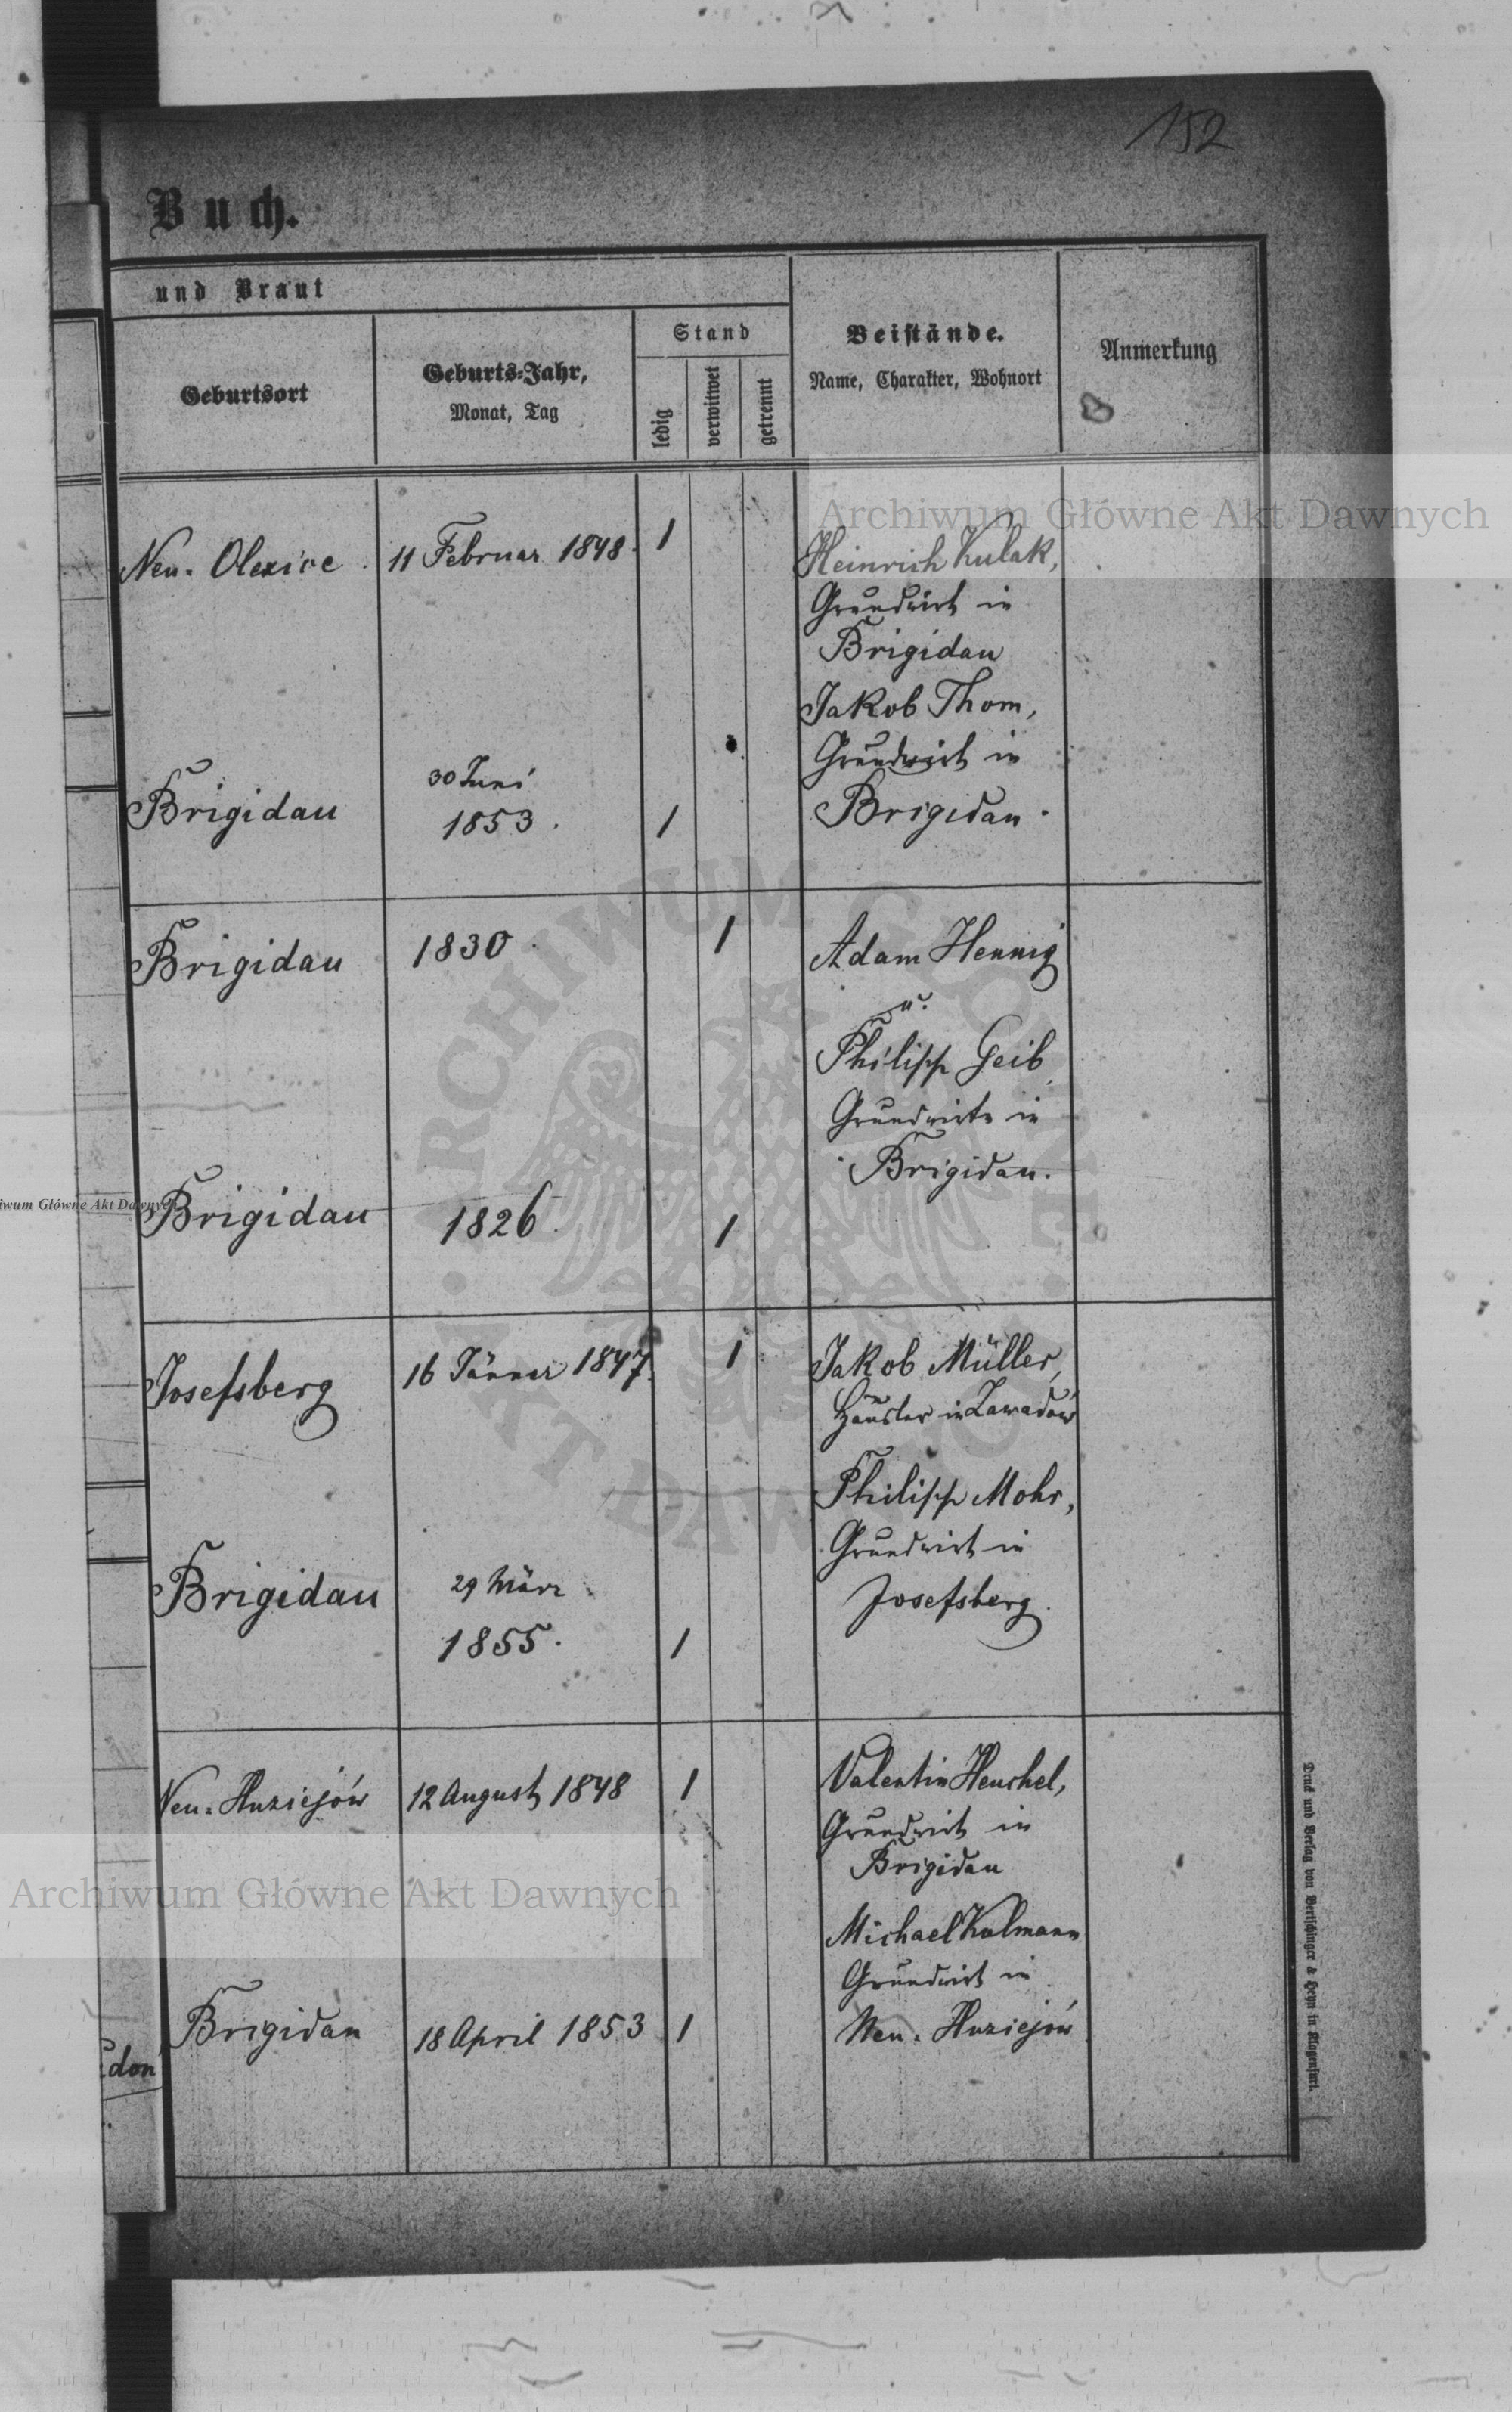 152
Buch.
und Braut
Geburtsort
Geburts-Jahr,
Monat, Tag
Stand
ledig
verwitwet
getrennt
Beistände.
Name, Charakter, Wohnort
Anmerkung
Archiwum Główne Akt Dawnych
Neu-Olexice 11 Februar 1848. 1
Heinrich Kulak,
Grundwirt in
Brigidau
Jakob Thom,
Grundwirt in
Brigidau.
Brigidau
30 Juni
1853. 1
Brigidau 1830. 1
Adam Hennig
u.
Philipp Geib
Grundwirte in
Brigidau.
Archiwum Główne Akt Dawnych
Brigidau 1826. 1
Josefsberg 16 Jänner 1847. 1
Jakob Müller,
Häusler in Zawadów
Philipp Mohr,
Grundwirt in
Josefsberg.
Brigidau
29 März
1855. 1
Neu-Huziejów 12 August 1848 1
Valentin Henchel,
Grundwirt in
Brigidau
Michael Kulmann
Grundwirt in
Neu-Huziejów
Archiwum Główne Akt Dawnych
Brigidau 18 April 1853 1
don
ARCHIWUM GŁÓWNE AKT DAWNYCH
Druck und Verlag von Bertschinger & Heyn in Klagenfurt.